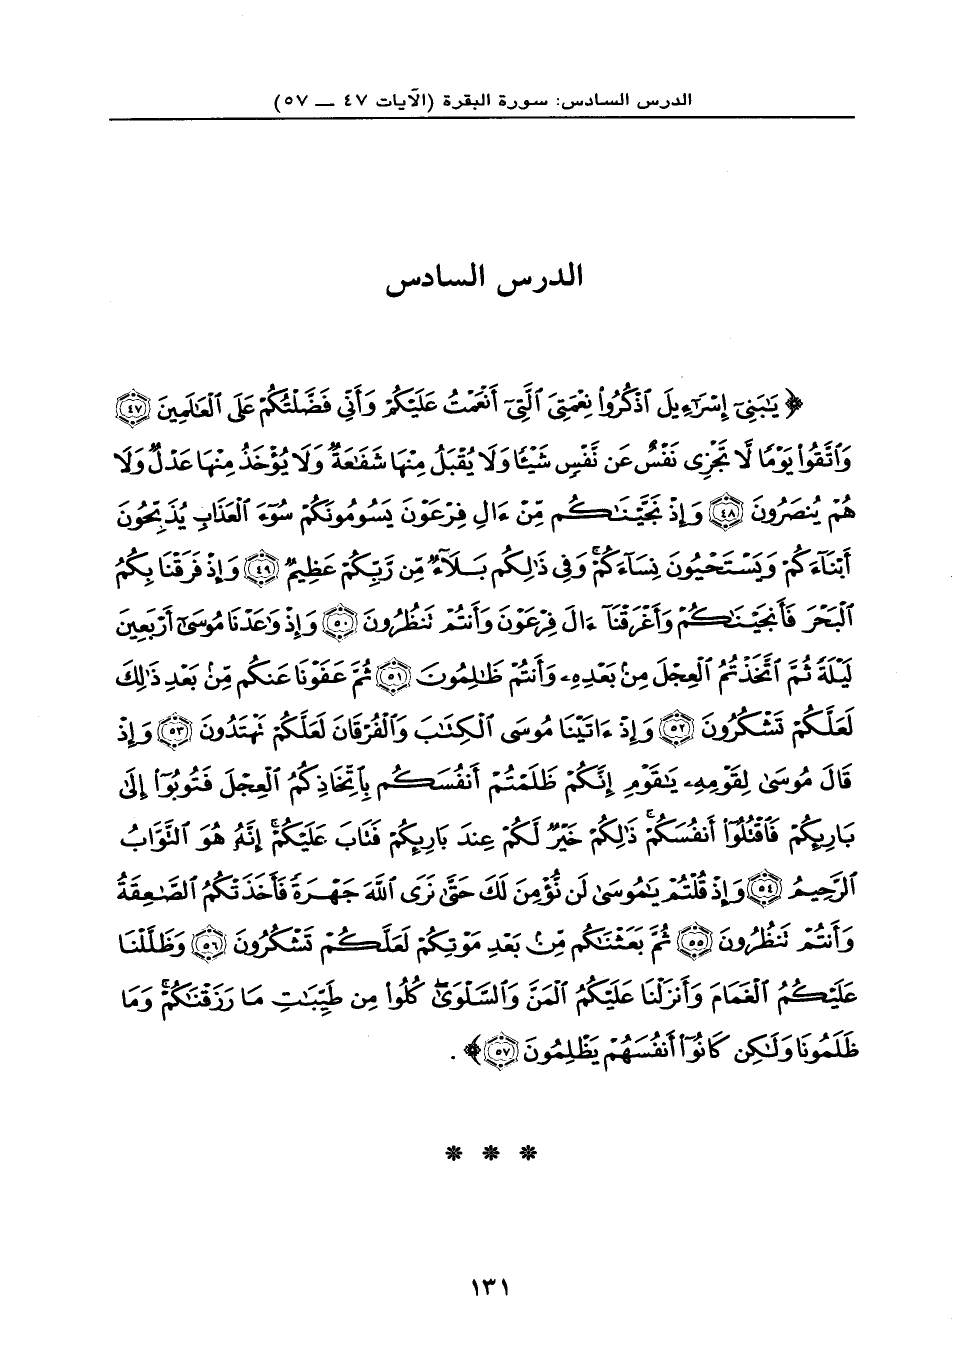 الدرس السادس: سورة البقرة (الآيات ٤٧ — ٥٧)
الدرس السادس
﴿ يَٰبَنِىٓ إِسْرَٰٓءِيلَ ٱذْكُرُوا۟ نِعْمَتِىَ ٱلَّتِىٓ أَنْعَمْتُ عَلَيْكُمْ وَأَنِّى فَضَّلْتُكُمْ عَلَى ٱلْعَٰلَمِينَ ٤٧
وَٱتَّقُوا۟ يَوْمًا لَّا تَجْزِى نَفْسٌ عَن نَّفْسٍ شَيْـًٔا وَلَا يُقْبَلُ مِنْهَا شَفَٰعَةٌ وَلَا يُؤْخَذُ مِنْهَا عَدْلٌ وَلَا
هُمْ يُنصَرُونَ ٤٨ وَإِذْ نَجَّيْنَٰكُم مِّنْ ءَالِ فِرْعَوْنَ يَسُومُونَكُمْ سُوٓءَ ٱلْعَذَابِ يُذَبِّحُونَ
أَبْنَآءَكُمْ وَيَسْتَحْيُونَ نِسَآءَكُمْ ۚ وَفِى ذَٰلِكُم بَلَآءٌ مِّن رَّبِّكُمْ عَظِيمٌ ٤٩ وَإِذْ فَرَقْنَا بِكُمُ
ٱلْبَحْرَ فَأَنجَيْنَٰكُمْ وَأَغْرَقْنَآ ءَالَ فِرْعَوْنَ وَأَنتُمْ تَنظُرُونَ ٥٠ وَإِذْ وَٰعَدْنَا مُوسَىٰٓ أَرْبَعِينَ
لَيْلَةً ثُمَّ ٱتَّخَذْتُمُ ٱلْعِجْلَ مِنۢ بَعْدِهِۦ وَأَنتُمْ ظَٰلِمُونَ ٥١ ثُمَّ عَفَوْنَا عَنكُم مِّنۢ بَعْدِ ذَٰلِكَ
لَعَلَّكُمْ تَشْكُرُونَ ٥٢ وَإِذْ ءَاتَيْنَا مُوسَى ٱلْكِتَٰبَ وَٱلْفُرْقَانَ لَعَلَّكُمْ تَهْتَدُونَ ٥٣ وَإِذْ
قَالَ مُوسَىٰ لِقَوْمِهِۦ يَٰقَوْمِ إِنَّكُمْ ظَلَمْتُمْ أَنفُسَكُم بِٱتِّخَاذِكُمُ ٱلْعِجْلَ فَتُوبُوٓا۟ إِلَىٰ
بَارِئِكُمْ فَٱقْتُلُوٓا۟ أَنفُسَكُمْ ذَٰلِكُمْ خَيْرٌ لَّكُمْ عِندَ بَارِئِكُمْ فَتَابَ عَلَيْكُمْ ۚ إِنَّهُۥ هُوَ ٱلتَّوَّابُ
ٱلرَّحِيمُ ٥٤ وَإِذْ قُلْتُمْ يَٰمُوسَىٰ لَن نُّؤْمِنَ لَكَ حَتَّىٰ نَرَى ٱللَّهَ جَهْرَةً فَأَخَذَتْكُمُ ٱلصَّٰعِقَةُ
وَأَنتُمْ تَنظُرُونَ ٥٥ ثُمَّ بَعَثْنَٰكُم مِّنۢ بَعْدِ مَوْتِكُمْ لَعَلَّكُمْ تَشْكُرُونَ ٥٦ وَظَلَّلْنَا
عَلَيْكُمُ ٱلْغَمَامَ وَأَنزَلْنَا عَلَيْكُمُ ٱلْمَنَّ وَٱلسَّلْوَىٰ ۖ كُلُوا۟ مِن طَيِّبَٰتِ مَا رَزَقْنَٰكُمْ ۖ وَمَا
ظَلَمُونَا وَلَٰكِن كَانُوٓا۟ أَنفُسَهُمْ يَظْلِمُونَ ٥٧ ﴾ .
* * *
١٣١